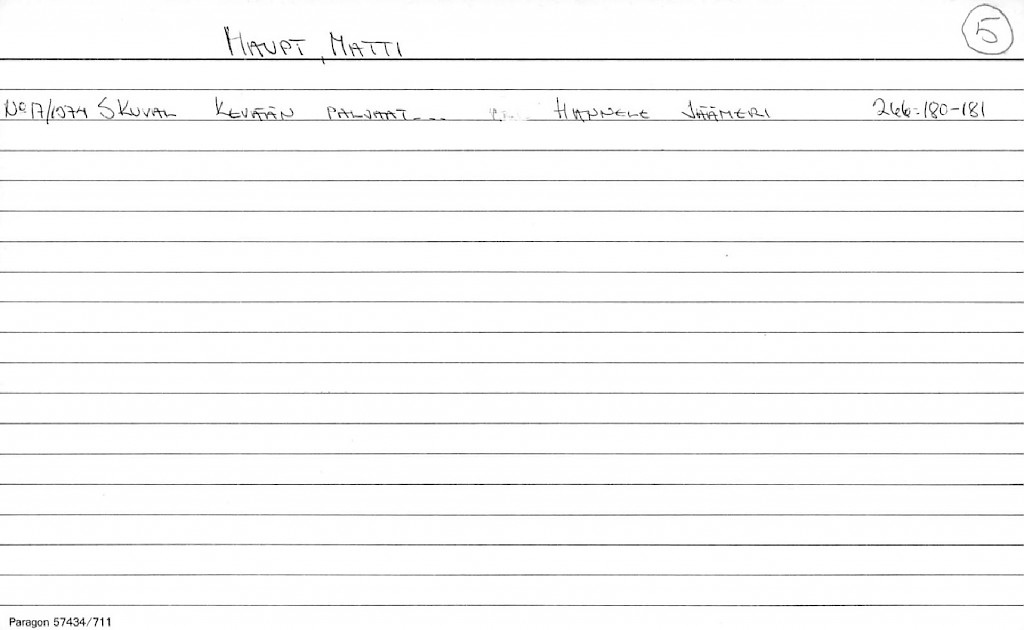 5
HAUPT, MATTI
No 17/1974 SKUVAL KEVÄÄN PALJAAT... HANNELE JÄÄMERI 266:180-181
Paragon 57434/711